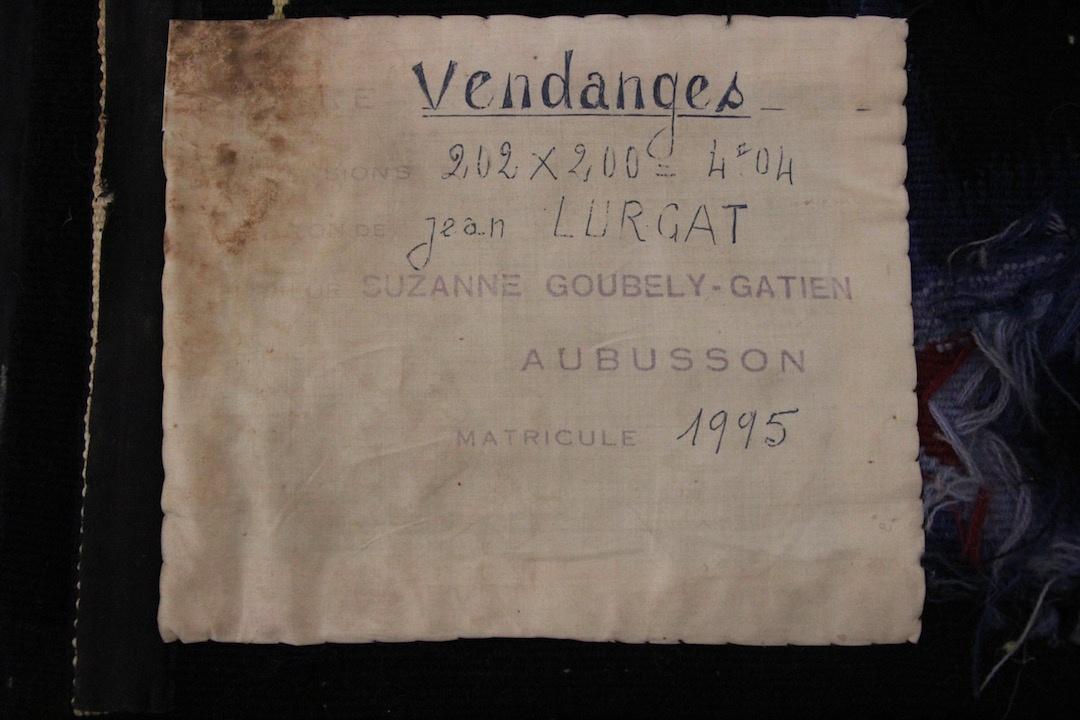 Vendanges
SIONS 202 X 200 = 4ᵐ04
ON DE jean LURGAT
SUZANNE GOUBELY-GATIEN
AUBUSSON
MATRICULE 1995